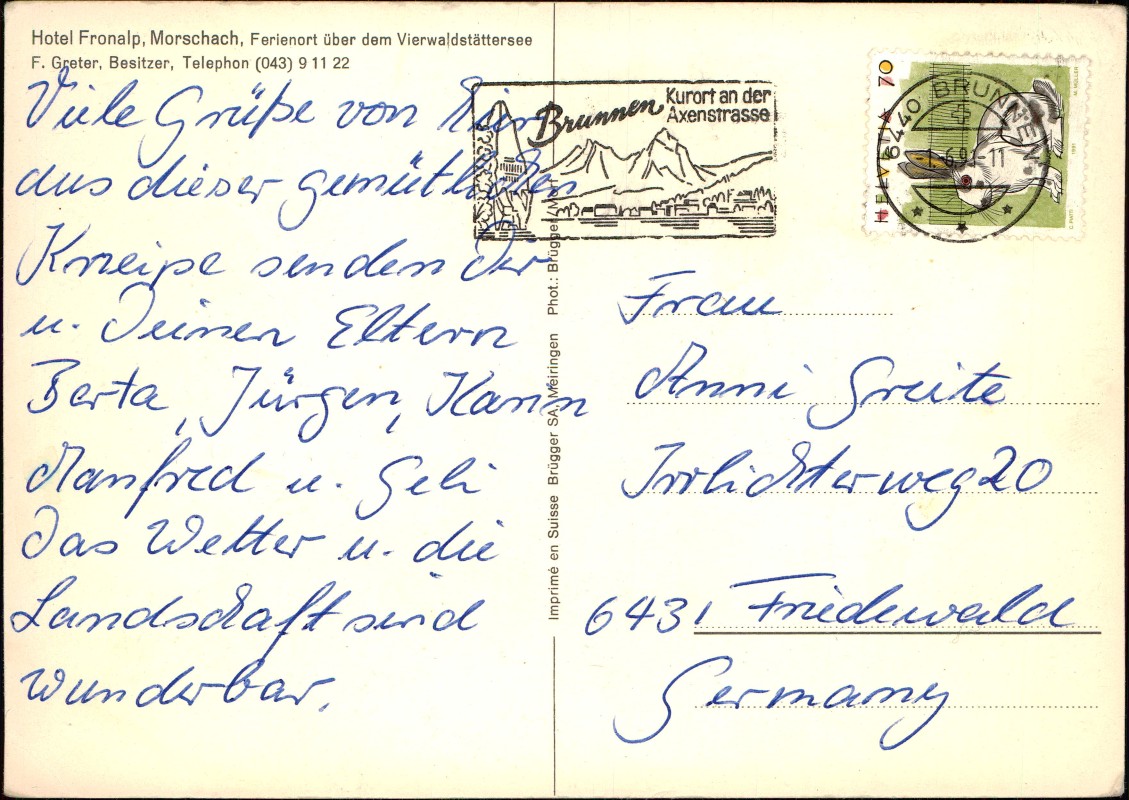 Hotel Fronalp, Morschach, Ferienort über dem Vierwaldstättersee
F. Greter, Besitzer, Telephon (043) 9 11 22
Viele Grüße von hier
aus dieser gemütlichen
Kneipe senden Dir
u. Deinen Eltern
Berta, Jürgen, Karin
Manfred u. Geli
Das Wetter u. die
Landschaft sind
wunderbar.
Imprimé en Suisse Brügger SA, Meiringen Phot.: Brügger,
Brunnen
Kurort an der
Axenstrasse
HELVETIA 70
6440 BRUNNEN
M. MÜLLER
1991
Frau
Anni Greite
Irrlichterweg 20
6431 Friedewald
Germany